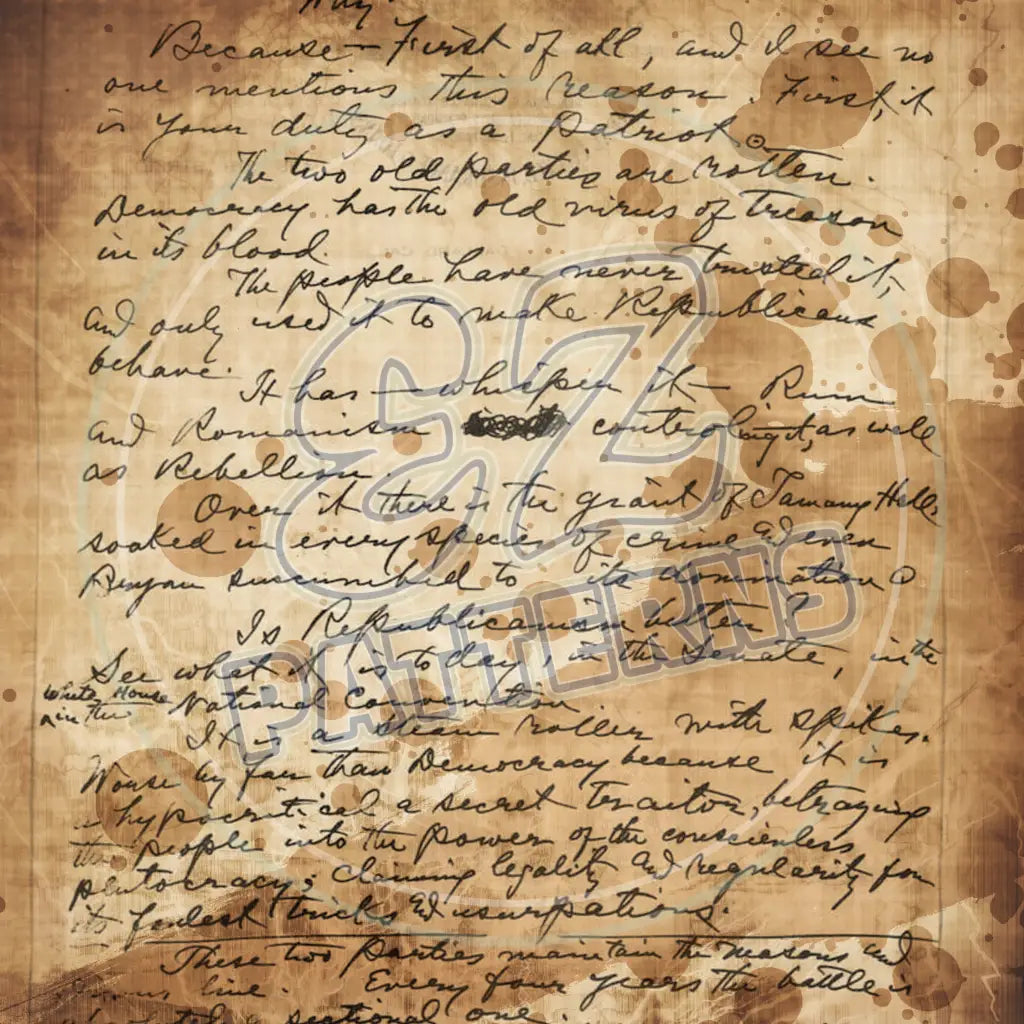 Why
Because – First of all, and I see no
one mentions this reason. First, it
is your duty as a patriot.
The two old parties are rotten.
Democracy has the old virus of treason
in its blood.
The people have never trusted it,
and only used it to make Republicans
behave.
It has – whisper it – Rum
and Romanism controlling it, as well
as Rebellion.
Over it there is the giant of Tamany Hall,
soaked in every species of crime and even
Bryan succumbed to its domination
Is Republicanism better?
See what it is today, in the Senate, in the
White House
in the National Convention
It is a steam roller with spikes.
Worse by far than Democracy because it is
hypocritical a secret traitor, betraying
the people into the power of the conscienless
plutocracy; claiming legality and regularity for
its foulest tricks and usurpations.
These two Parties maintain the Masons and
line. Every four years the battle is
a sectional one.
EZ
PATTERNS